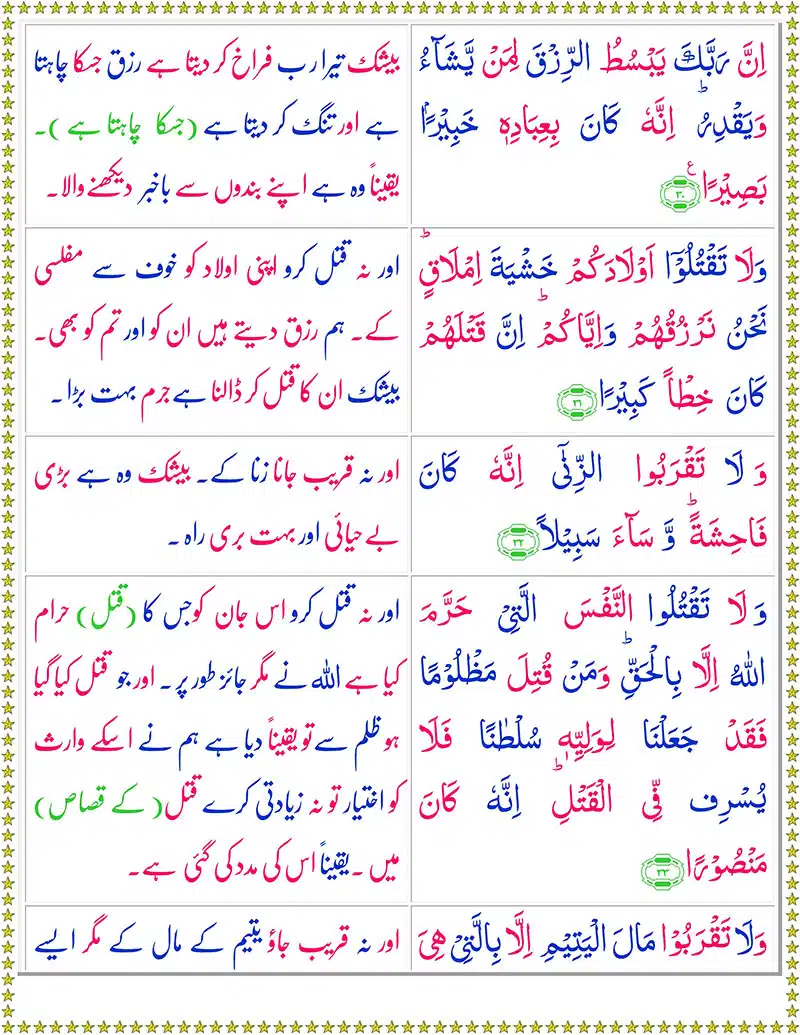 اِنَّ رَبَّكَ يَبْسُطُ الرِّزْقَ لِمَنْ يَّشَآءُ
وَيَقْدِرُ ؕ اِنَّهٗ كَانَ بِعِبَادِهٖ خَبِيْرًۢا
بَصِيْرًا ع ۳۰
بیشک تیرا رب فراخ کر دیتا ہے رزق جسکا چاہتا
ہے اور تنگ کر دیتا ہے (جسکا چاہتا ہے)۔
یقیناً وہ ہے اپنے بندوں سے باخبر دیکھنے والا۔
وَلَا تَقْتُلُوْۤا اَوْلَادَكُمْ خَشْيَةَ اِمْلَاقٍ ؕ
نَحْنُ نَرْزُقُهُمْ وَاِيَّاكُمْ ؕ اِنَّ قَتْلَهُمْ
كَانَ خِطْاً كَبِيْرًا ۳۱
اور نہ قتل کرو اپنی اولاد کو خوف سے مفلسی
کے۔ ہم رزق دیتے ہیں ان کو اور تم کو بھی۔
بیشک ان کا قتل کر ڈالنا ہے جرم بہت بڑا۔
وَ لَا تَقْرَبُوا الزِّنٰٓى اِنَّهٗ كَانَ
فَاحِشَةً ؕ وَّ سَآءَ سَبِيْلًا ۳۲
اور نہ قریب جانا زنا کے۔ بیشک وہ ہے بڑی
بے حیائی اور بہت بری راہ۔
وَ لَا تَقْتُلُوا النَّفْسَ الَّتِىْ حَرَّمَ
اللّٰهُ اِلَّا بِالْحَقِّ ؕ وَمَنْ قُتِلَ مَظْلُوْمًا
فَقَدْ جَعَلْنَا لِوَلِيِّهٖ سُلْطٰنًا فَلَا
يُسْرِف فِّى الْقَتْلِ ؕ اِنَّهٗ كَانَ
مَنْصُوْرًا ۳۳
اور نہ قتل کرو اس جان کو جس کا (قتل) حرام
کیا ہے اللہ نے مگر جائز طور پر۔ اور جو قتل کیا گیا
ہو ظلم سے تو یقیناً دیا ہے ہم نے اسکے وارث
کو اختیار تو نہ زیادتی کرے قتل (کے قصاص)
میں۔ یقیناً اس کی مدد کی گئی ہے۔
وَلَا تَقْرَبُوْا مَالَ الْيَتِيْمِ اِلَّا بِالَّتِىْ هِىَ
اور نہ قریب جاؤ یتیم کے مال کے مگر ایسے